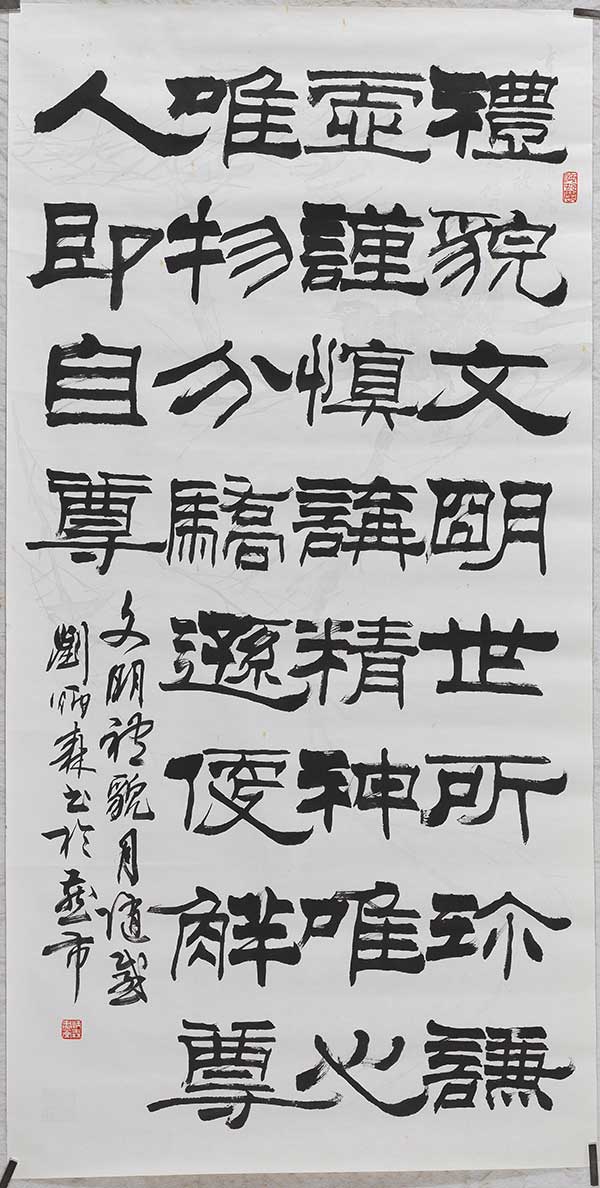 禮貌文明世所珎謙
虛謹慎講精神唯心
唯物分驕遜便解尊
人即自尊
文明禮貌月隨感
劉炳森書於燕市